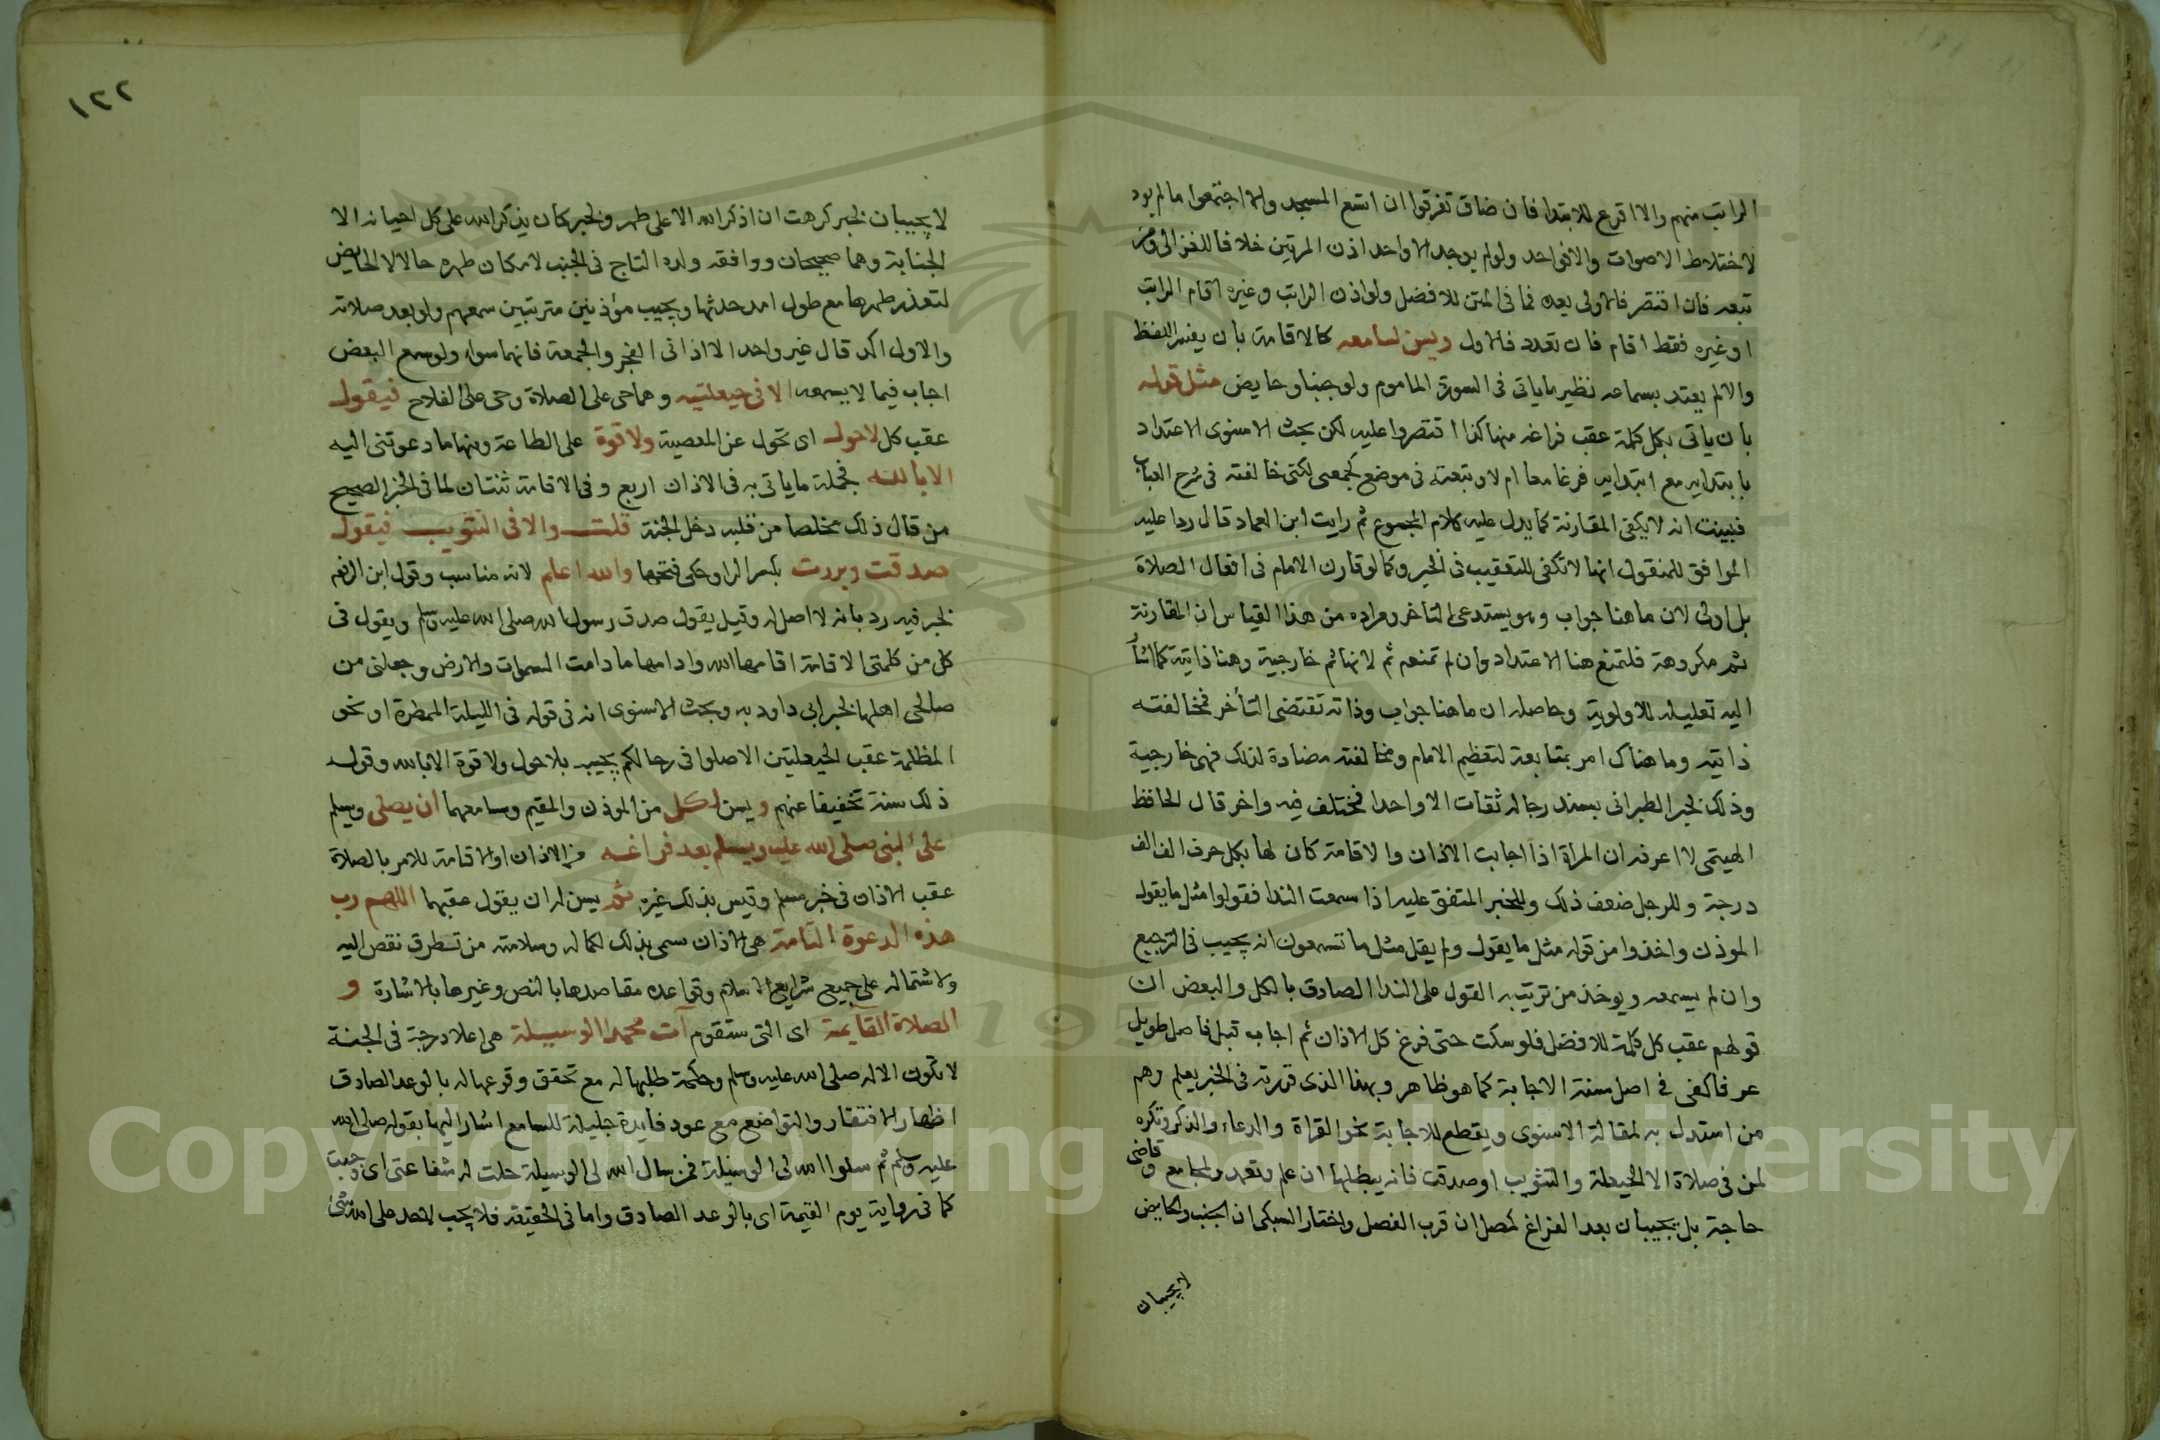 الراتب منهم والا اقرع للابتدا فان ضاق تفرقوا ان اتسع المسجد والا اجتمعوا ما لم يود
لاختلاط الاصوات والا فواحد ولو لم يوجد الا واحد اذن المرتين خلافا للغزالى ومن
تبعه فان اقتصر فالاولى بعده فما فى المتن للافضل ولو اذن الراتب وغيره اقام الراتب
او غيره فقط اقام فان تعدد فالاول ويسن لسامعه كالاقامة بان يفسر اللفظ
والا لم يعتد بسماعه نظير ما ياتى فى السورة للماموم ولو جنبا وحايض مثل قوله
بان ياتى بكل كلمة عقب فراغه منها كذا اقتصروا عليه لكن بحث الاسنوى الاعتداد
بابتدايه مع ابتدايه فرغا معا ام لا وتبعته فى موضع كجمع لكنى خالفته فى شرح العباب
فبينت انه لا يكفى المقارنة كما يدل عليه كلام المجموع ثم رايت ابن العماد قال ردا عليه
الموافق للمنقول انها لا تكفى للتعقيب فى الخبر وكما لو قارن الامام فى افعال الصلاة
بل اولى لان ما هنا جواب وهو يستدعى التاخر ومراده من هذا القياس ان المقارنة
ثم مكروهة فلتمنع هنا الاعتداد وان لم تمنعه ثم لانها ثم خارجية وهنا ذاتية كما اشار
اليه تعليله للاولوية وحاصله ان ما هنا جواب وذاته تقتضى التأخر فمخالفته
ذاتية وما هناك امر بمتابعة لتعظيم الامام ومخالفته مضادة لذلك فهى خارجية
وذلك لخبر الطبرانى بسند رجاله ثقات الا واحدا فمختلف فيه واخر قال الحافظ
الهيتمى لا اعرفه ان المراة اذا اجابت الاذان والاقامة كان لها بكل حرف الف الف
درجة وللرجل ضعف ذلك وللخبر المتفق عليه اذا سمعت الندا فقولوا مثل ما يقول
الموذن واخذوا من قوله مثل ما يقول ولم يقل مثل ما تسمعون انه يجيب فى الترجيع
وان لم يسمعه ويوخذ من ترتيبه القول على الندا الصادق بالكل والبعض ان
قولهم عقب كل كلمة للافضل فلو سكت حتى فرغ كل الاذان ثم اجاب قبل فاصل طويل
عرفا كفى فى اصل سنة الاجابة كما هو ظاهر وبهذا الذى قررته فى الخبر يعلم وهم
من استدل به لمقالة الاسنوى ويقطع للاجابة نحو القراة والدعاء والذكر وتكره
لمن فى صلاة الا الحيعلة والتثويب او صدقت فانه يبطلها ان علم وتعمد ولمجامع وقاضى
حاجة بل يجيبان بعد الفراغ كمصل ان قرب الفصل واختار السبكى ان الجنب والحايض
لا يجيبان
١٢٢
لا يجيبان لخبر كرهت ان اذكر الله الا على طهر ولخبر كان يذكر الله على كل احيانه الا
الجنابة وهما صحيحان ووافقه ولده التاج فى الجنب لامكان طهره حالا لا الحايض
لتعذر طهرها مع طول امد حدثها ويجيب مؤذنين مترتبين سمعهم ولو بعد صلاته
والاول اكد قال غير واحد الا اذانى الفجر والجمعة فانهما سواء ولو سمع البعض
اجاب فيما لا يسمعه الا فى حيعلتيه وهما حى على الصلاة وحى على الفلاح فيقول
عقب كل لا حول اى تحول عن المعصية ولا قوة على الطاعة ومنها ما دعوتنى اليه
الا بالله فجملة ما ياتى به فى الاذان اربع وفى الاقامة ثنتان لما فى الخبر الصحيح
من قال ذلك مخلصا من قلبه دخل الجنة قلت والا فى التثويب فيقول
صدقت وبررت بكسر الرا وحكى فتحها والله اعلم لانه مناسب وقول ابن الرفعه
لخبر فيه رد بانه لا اصل له وقيل يقول صدق رسول الله صلى الله عليه وسلم ويقول فى
كل من كلمتى الاقامة اقامها الله وادامها ما دامت السموات والارض وجعلنى من
صالحى اهلها لخبر ابى داود به وبحث الاسنوى انه فى قوله فى الليلة الممطرة او نحو
المظلمة عقب الحيعلتين الا صلوا فى رحالكم يجيب بلا حول ولا قوة الا بالله وقول
ذلك سنة تخفيفا عنهم ويسن لكل من الموذن والمقيم وسامعهما ان يصلى ويسلم
على النبى صلى الله عليه وسلم بعد فراغه من الاذان او الاقامة للامر بالصلاة
عقب الاذان فى خبر مسلم وقيس بذلك غيره ثم يسن له ان يقول عقبهما اللهم رب
هذه الدعوة التامة هى الاذان سمى بذلك لكماله وسلامته من تطرق نقص اليه
ولاشتماله على جميع شرايع الاسلام وقواعده مقاصدها بالنص وغيرها بالاشارة و
الصلاة القايمة اى التى ستقوم آت محمدا الوسيلة هى اعلا درجة فى الجنة
لا تكون الا له صلى الله عليه وسلم وحكمة طلبها له مع تحقق وقوعها له بالوعد الصادق
اظهار الافتقار والتواضع مع عود فايدة جليلة للسامع اشار اليها بقوله صلى الله
عليه وسلم ثم سلوا الله لى الوسيلة فمن سال الله لى الوسيلة حلت له شفاعتى اى وجبت
كما فى رواية يوم القيمة اى بالوعد الصادق واما فى الحقيقة فلا يجب لاحد على الله شئ
Copyright © King Saud University